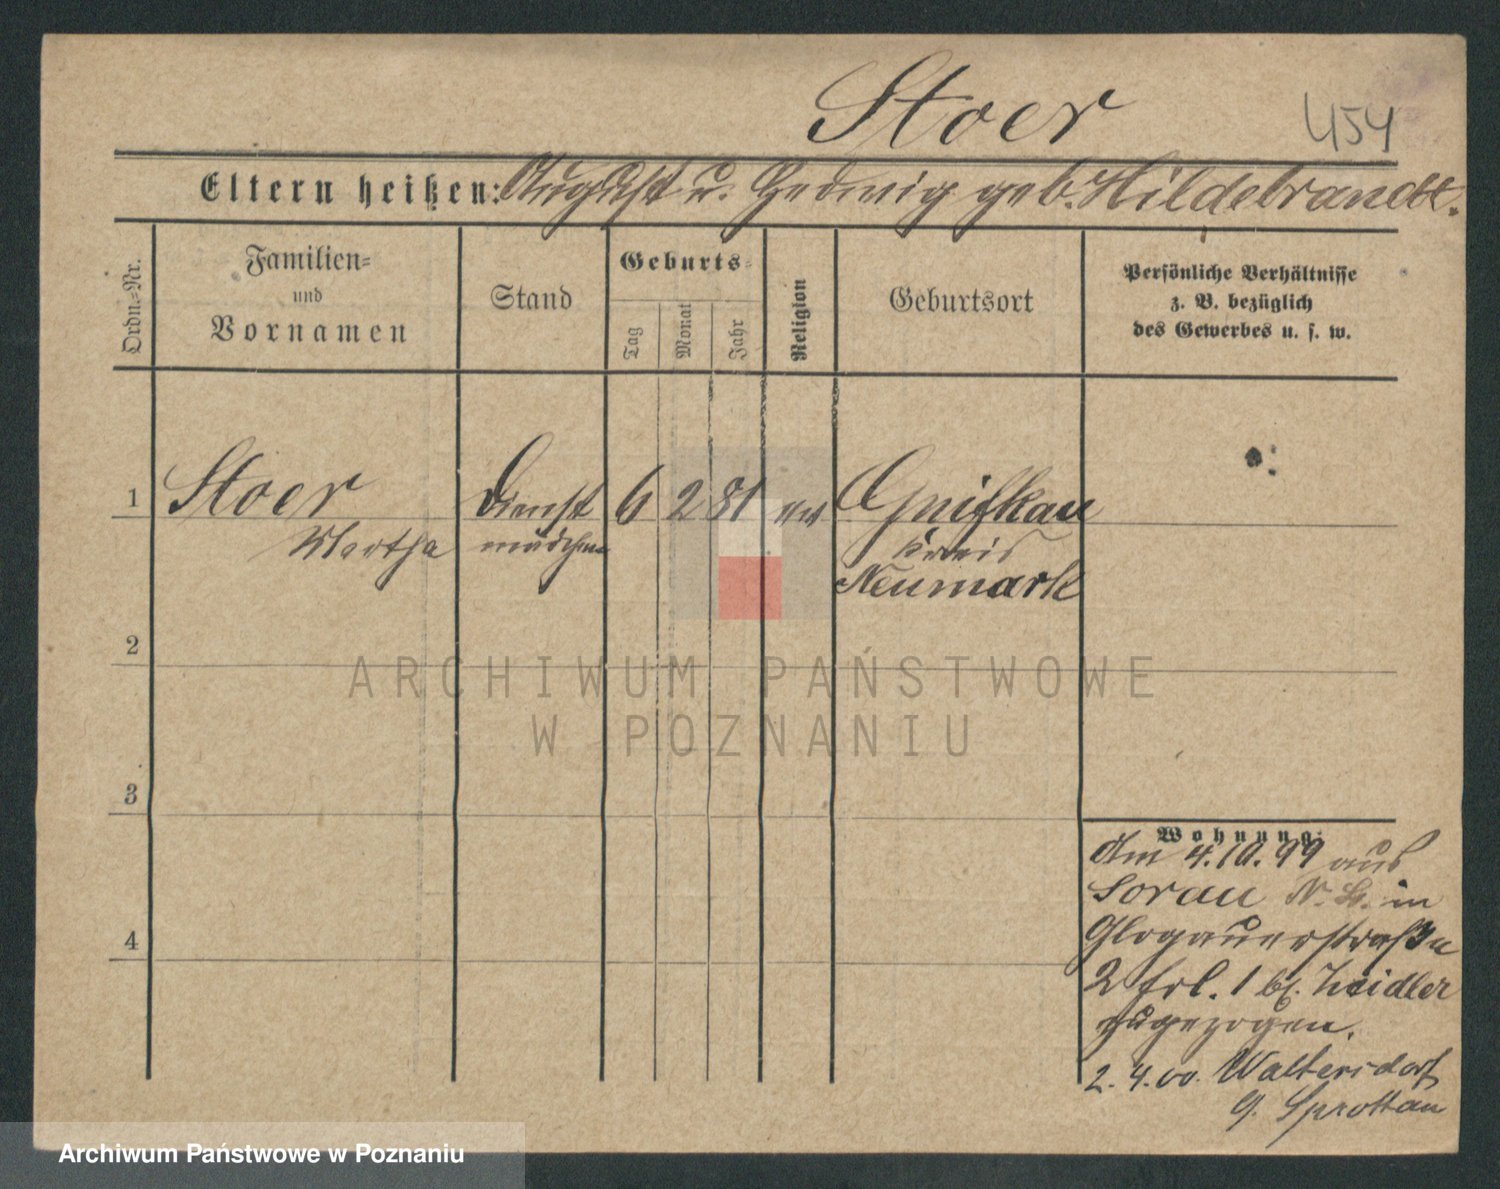 Stoer
454
Eltern heißen: August u. Hedwig geb. Hildebrandt.
Ordn.=Nr.
Familien=
und
Vornamen
Stand
Geburts=
Tag
Monat
Jahr
Religion
Geburtsort
Persönliche Verhältnisse
z. B. bezüglich
des Gewerbes u. s. w.
1 Stoer Dienst 6 2 81 ev Gniefkau
Martha mädchen Kreis
Neumark
2
3
4
Wohnung:
Am 4.10.99 aus
Sorau N. L. in
Glogauerstraße
2 Frl. 1 b/. Zeidler
zugezogen.
2. 4. 00. Waltersdorf
Sprottau
ARCHIWUM PAŃSTWOWE
W POZNANIU
Archiwum Państwowe w Poznaniu